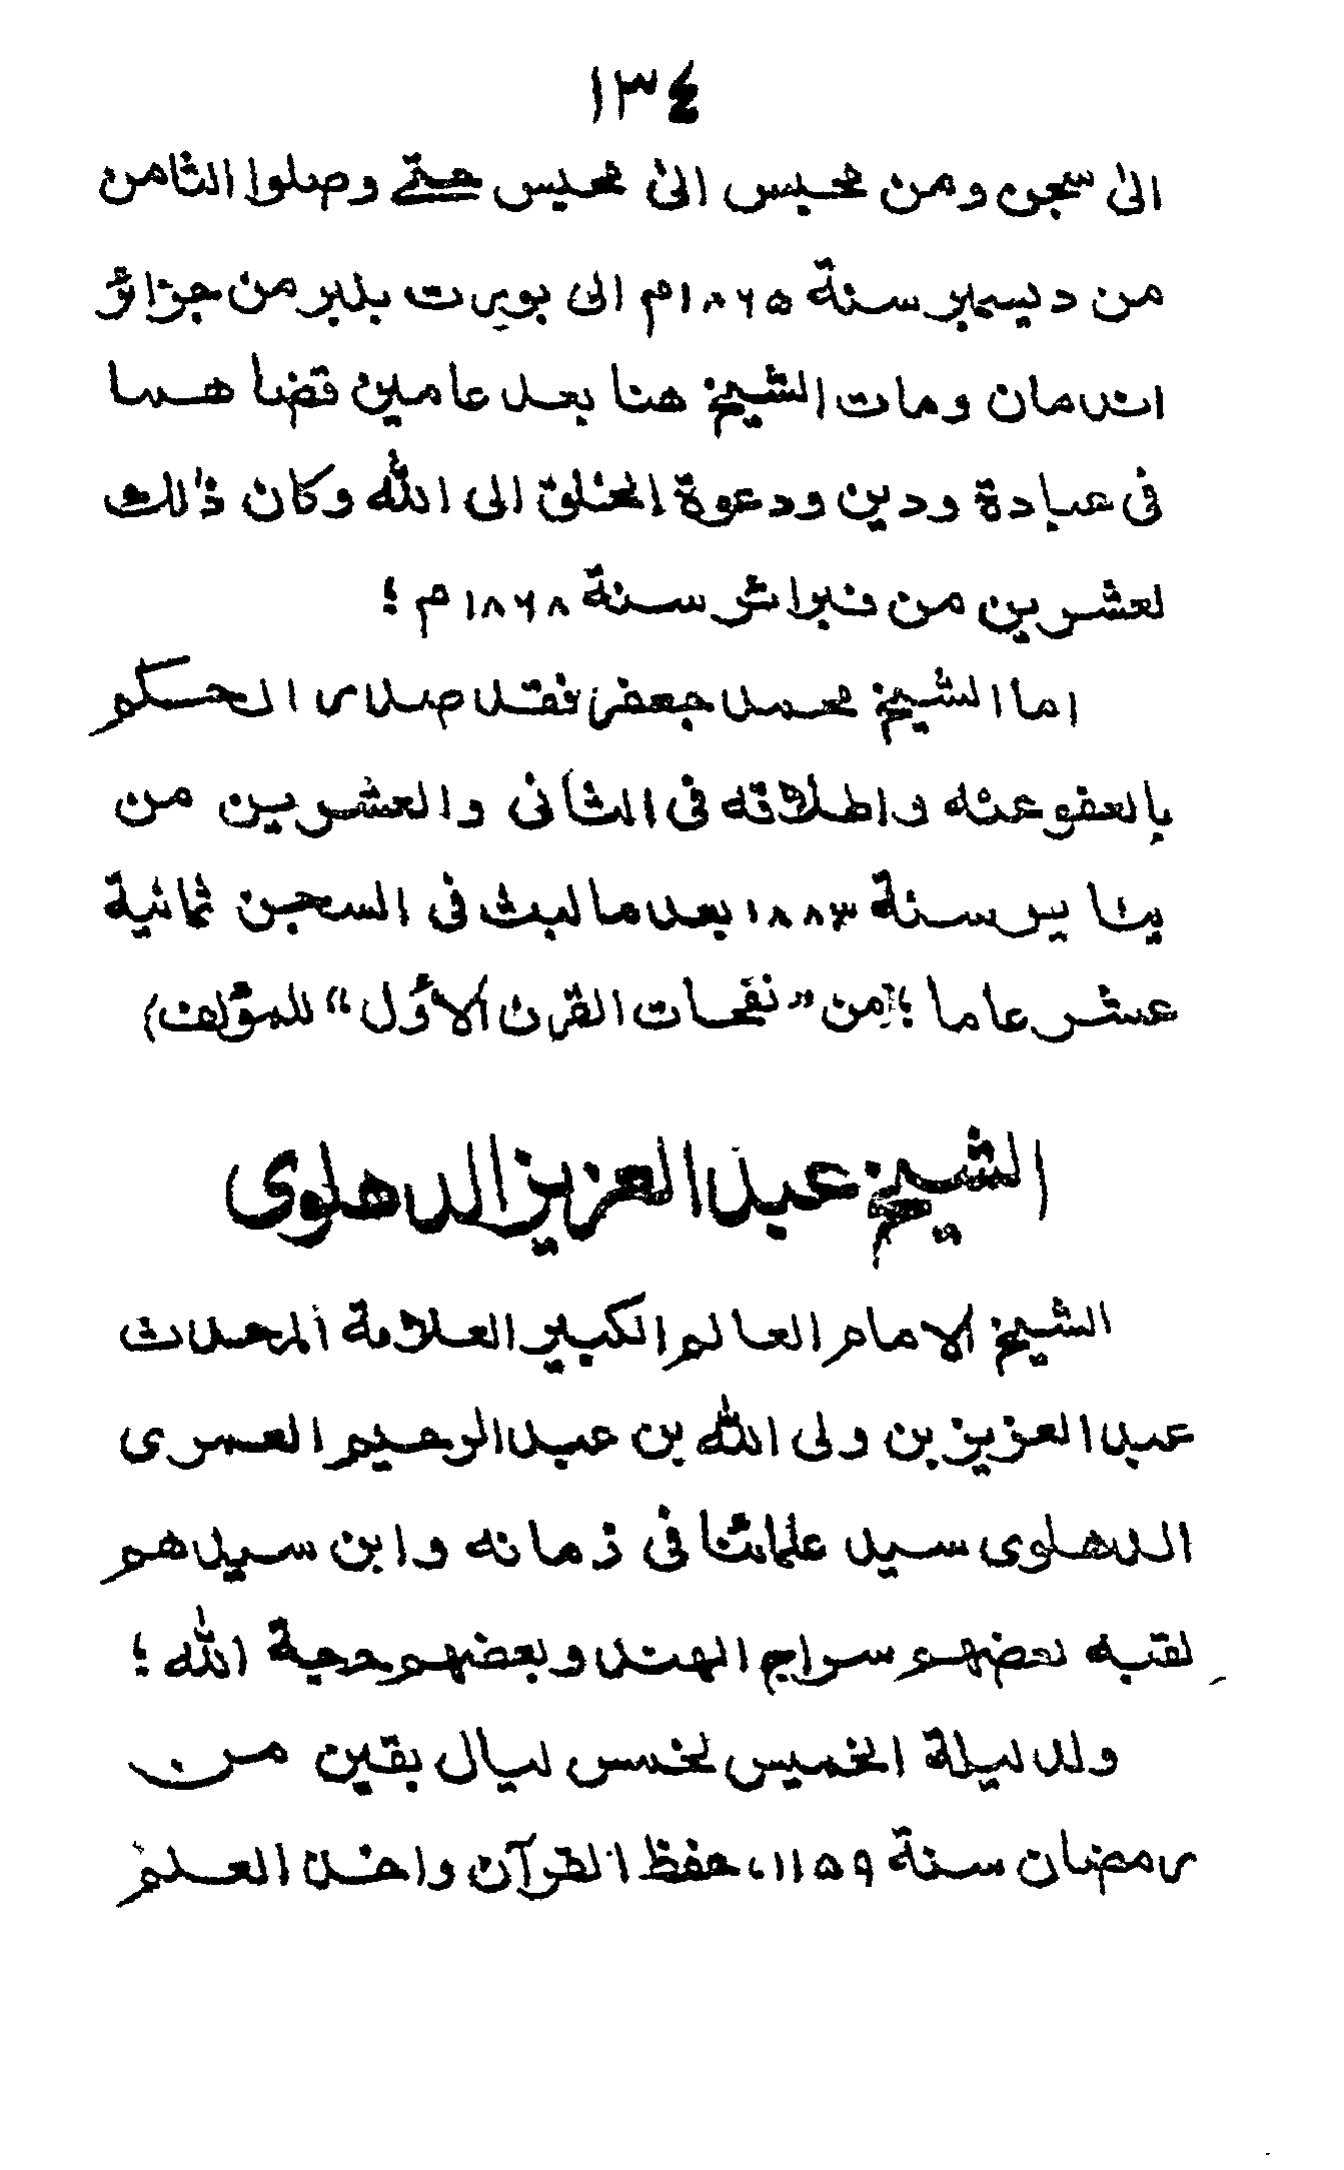 ١٣٤
الى سجن ومن محبس الى محبس حتى وصلوا الثامن
من ديسمبر سنة ١٨٦٥م الى بويرت بلير من جزائر
اندمان ومات الشيخ هنا بعد عامين قضا هسا
فى عبادة ودين ودعوة الخلق الى الله وكان ذٰلك
لعشرين من فبرائر سنة ١٨٦٨م ؛
اما الشيخ محمد جعفر فقد صدر الحكم
بالعفو عنه واطلاقه فى الثانى والعشرين من
يناير سنة ١٨٨٣ بعد ما لبث فى السجن ثمانية
عشر عاما ؛(من "نفحات القرن الاوّل" للمؤلف)
الشيخ عبد العزيز الدهلوى
الشيخ الامام العالم الكبير العلامة المحدث
عبد العزيز بن ولى الله بن عبد الرحيم العمرى
الدهلوى سيد علمائنا فى زمانه وابن سيدهم
لقبه بعضهم سراج الهند وبعضهم حجة الله ؛
ولد ليلة الخميس لخمس ليال بقين من
رمضان سنة ١١٥٩، حفظ القرآن واخذ العلم